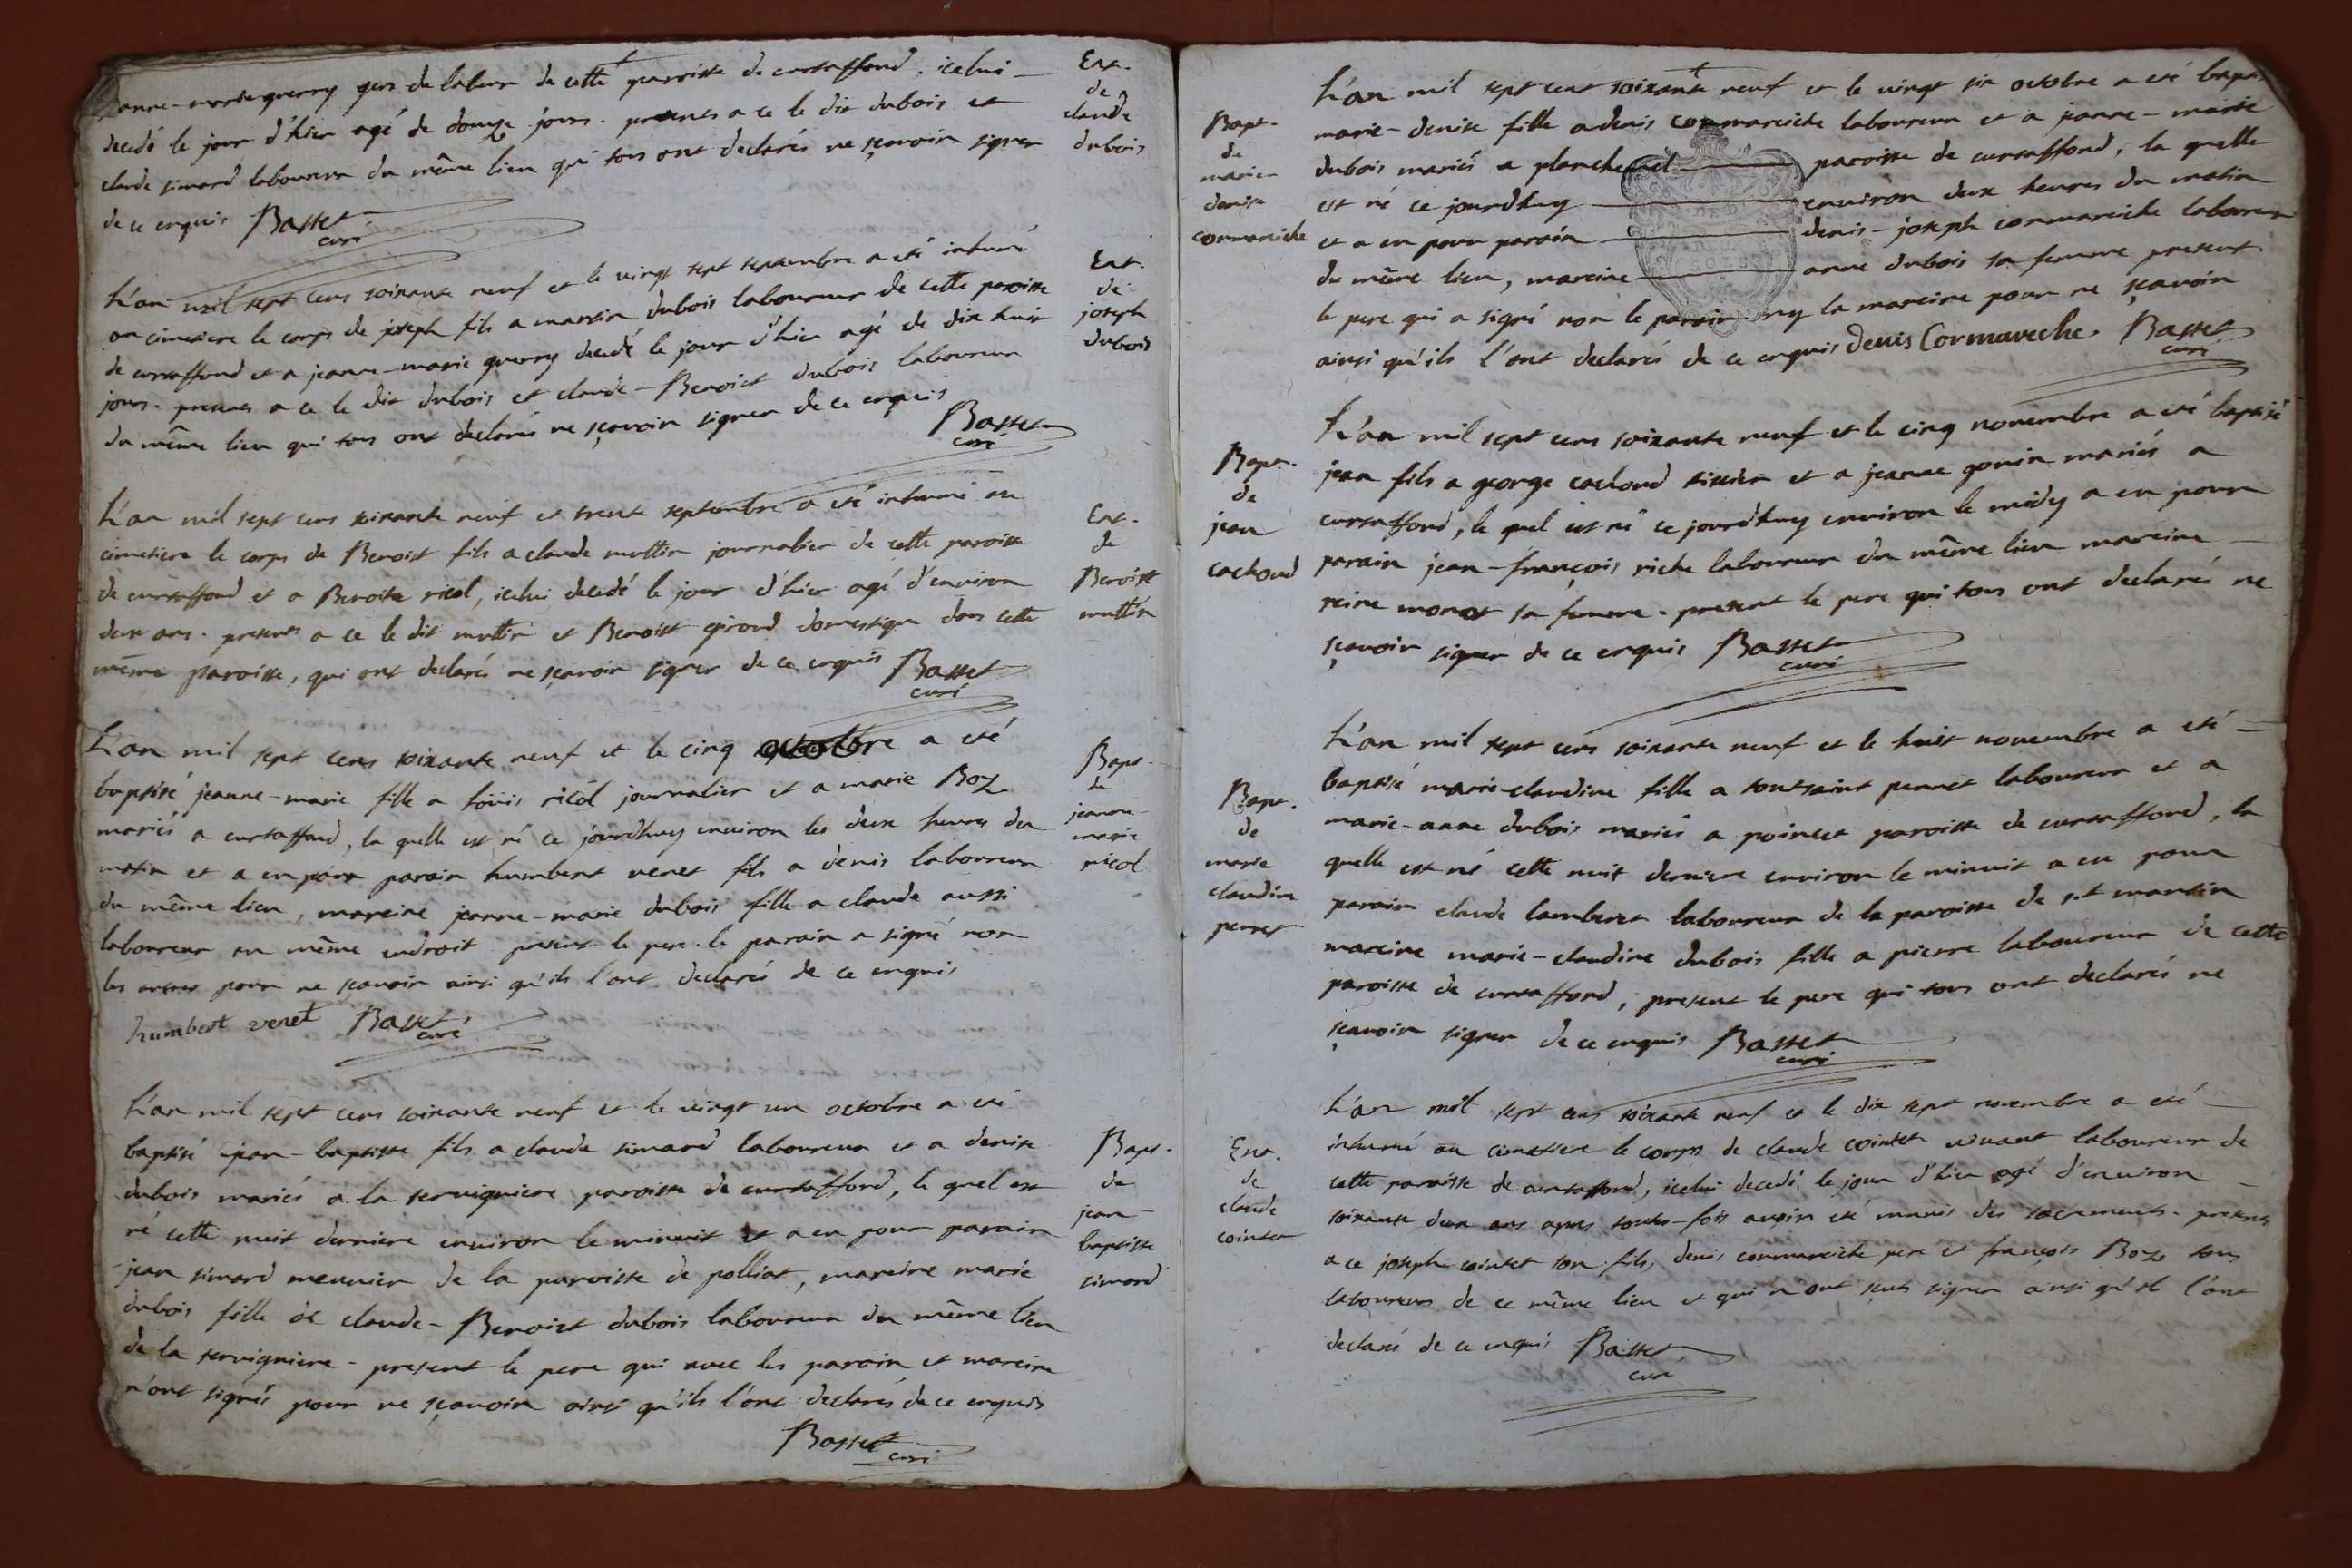 jeanne-marie guerry gens de labeur de cette paroisse de curtaffond. icelui
decedé le jour d'hier agé de douze jours. presents a ce le dit dubois et
claude simard laboureur du même lieu qui tous ont declarés ne sçavoir signer
de ce enquis Basset
curé
Ent.
de
claude
dubois
L'an mil sept cens soixante neuf et le vingt sept septembre a eté inhumé
au cimetiere le corps de joseph fils a martin dubois laboureur de cette paroisse
de curtaffond et a jeanne-marie guerry decedé le jour d'hier agé de dix huit
jours. presents a ce le dit dubois et claude-Benoict dubois laboureur
du même lieu qui tous ont declarés ne sçavoir signer de ce enquis
Basset
curé
Ent.
de
joseph
dubois
L'an mil sept cens soixante neuf et trente septembre a eté inhumé au
cimetiere le corps de Benoist fils a claude muttin journalier de cette paroisse
de curtaffond et a Benoite ricol, icelui decedé le jour d'hier agé d'environ
deux ans. presents a ce le dit muttin et Benoist giroud domestique dans cette
même paroisse, qui ont declarés ne sçavoir signer de ce enquis Basset
curé
Ent.
de
Benoist
muttin
L'an mil sept cens soixante neuf et le cinq octobre a eté
baptisé jeanne-marie fille a loüis ricol journalier et a marie Boz
mariés a curtaffond, la quelle est né ce jourdhuy environ les deux heures du
matin et a eu pour parain humbert venet fils a denis laboureur
du même lieu, mareine jeanne-marie dubois fille a claude aussi
laboureur au même endroit present le pere. le parain a signé non
les autres pour ne sçavoir ainsi qu'ils l'ont declarés de ce enquis
humbert venet Basset
curé
Bapt.
de
jeanne-
marie
ricol
L'an mil sept cens soixante neuf et le vingt un octobre a eté
baptisé jean-baptiste fils a claude simard laboureur et a denise
dubois mariés a la servigniere paroisse de curtaffond, le quel est
né cette nuit derniere environ le minuit et a eu pour parain
jean simard meunier de la paroisse de polliat, mareine marie
dubois fille de claude-Benoict dubois laboureur du même lieu
de la servigniere - present le pere qui avec les parain et mareine
n'ont signés pour ne sçavoir ainsi qu'ils l'ont declarés de ce enquis
Basset
curé
Bapt.
de
jean-
baptiste
simard
L'an mil sept cent soixante neuf et le vingt six octobre a eté bapti
marie-denise fille a denis cormareiche laboureur et a jeanne-marie
dubois mariés a planche paroisse de curtaffond, la quelle
est né ce jourdhuy environ deux heures du matin
et a eu pour parain denis-joseph cormareiche laboureur
du même lieu, mareine anne dubois sa femme present
le pere qui a signé non le parain ny la mareine pour ne sçavoir
ainsi qu'ils l'ont declarés de ce enquis Denis Cormareche Basset
curé
Bapt.
de
marie
denise
cormareiche
L'an mil sept cens soixante neuf et le cinq novembre a eté baptisé
jean fils a george cachoud tissier et a jeanne gonin mariés a
curtaffond, le quel est né ce jourdhuy environ le midy a eu pour
parain jean-françois riche laboureur du même lieu mareine
reine monet sa femme. present le pere qui tous ont declarés ne
sçavoir signer de ce enquis Basset
curé
Bapt.
de
jean
cachoud
L'an mil sept cens soixante neuf et le huit novembre a eté
baptisé marie-claudine fille a toutsaint perret laboureur et a
marie-anne dubois mariés a poinset paroisse de curtaffond, la
quelle est né cette nuit derniere environ le minuit a eu pour
parain claude lamberet laboureur de la paroisse de st martin
mareine marie-claudine dubois fille a pierre laboureur de cette
paroisse de curtaffond, present le pere qui tous ont declarés ne
sçavoir signer de ce enquis Basset
curé
Bapt.
de
marie
claudine
perret
L'an mil sept cens soixante neuf et le dix sept novembre a eté
inhumé au cimetiere le corps de claude cointet vivant laboureur de
cette paroisse de curtaffond, icelui decedé le jour d'hier agé d'environ
soixante deux ans apres toutes-fois avoir eté munis des sacrements. presents
a ce joseph cointet son fils, denis cormareiche pere et françois Boz tous
laboureurs de ce même lieu et qui n'ont signer ainsi qu'il l'ont
declarés de ce enquis Basset
curé
Ent.
de
claude
cointet